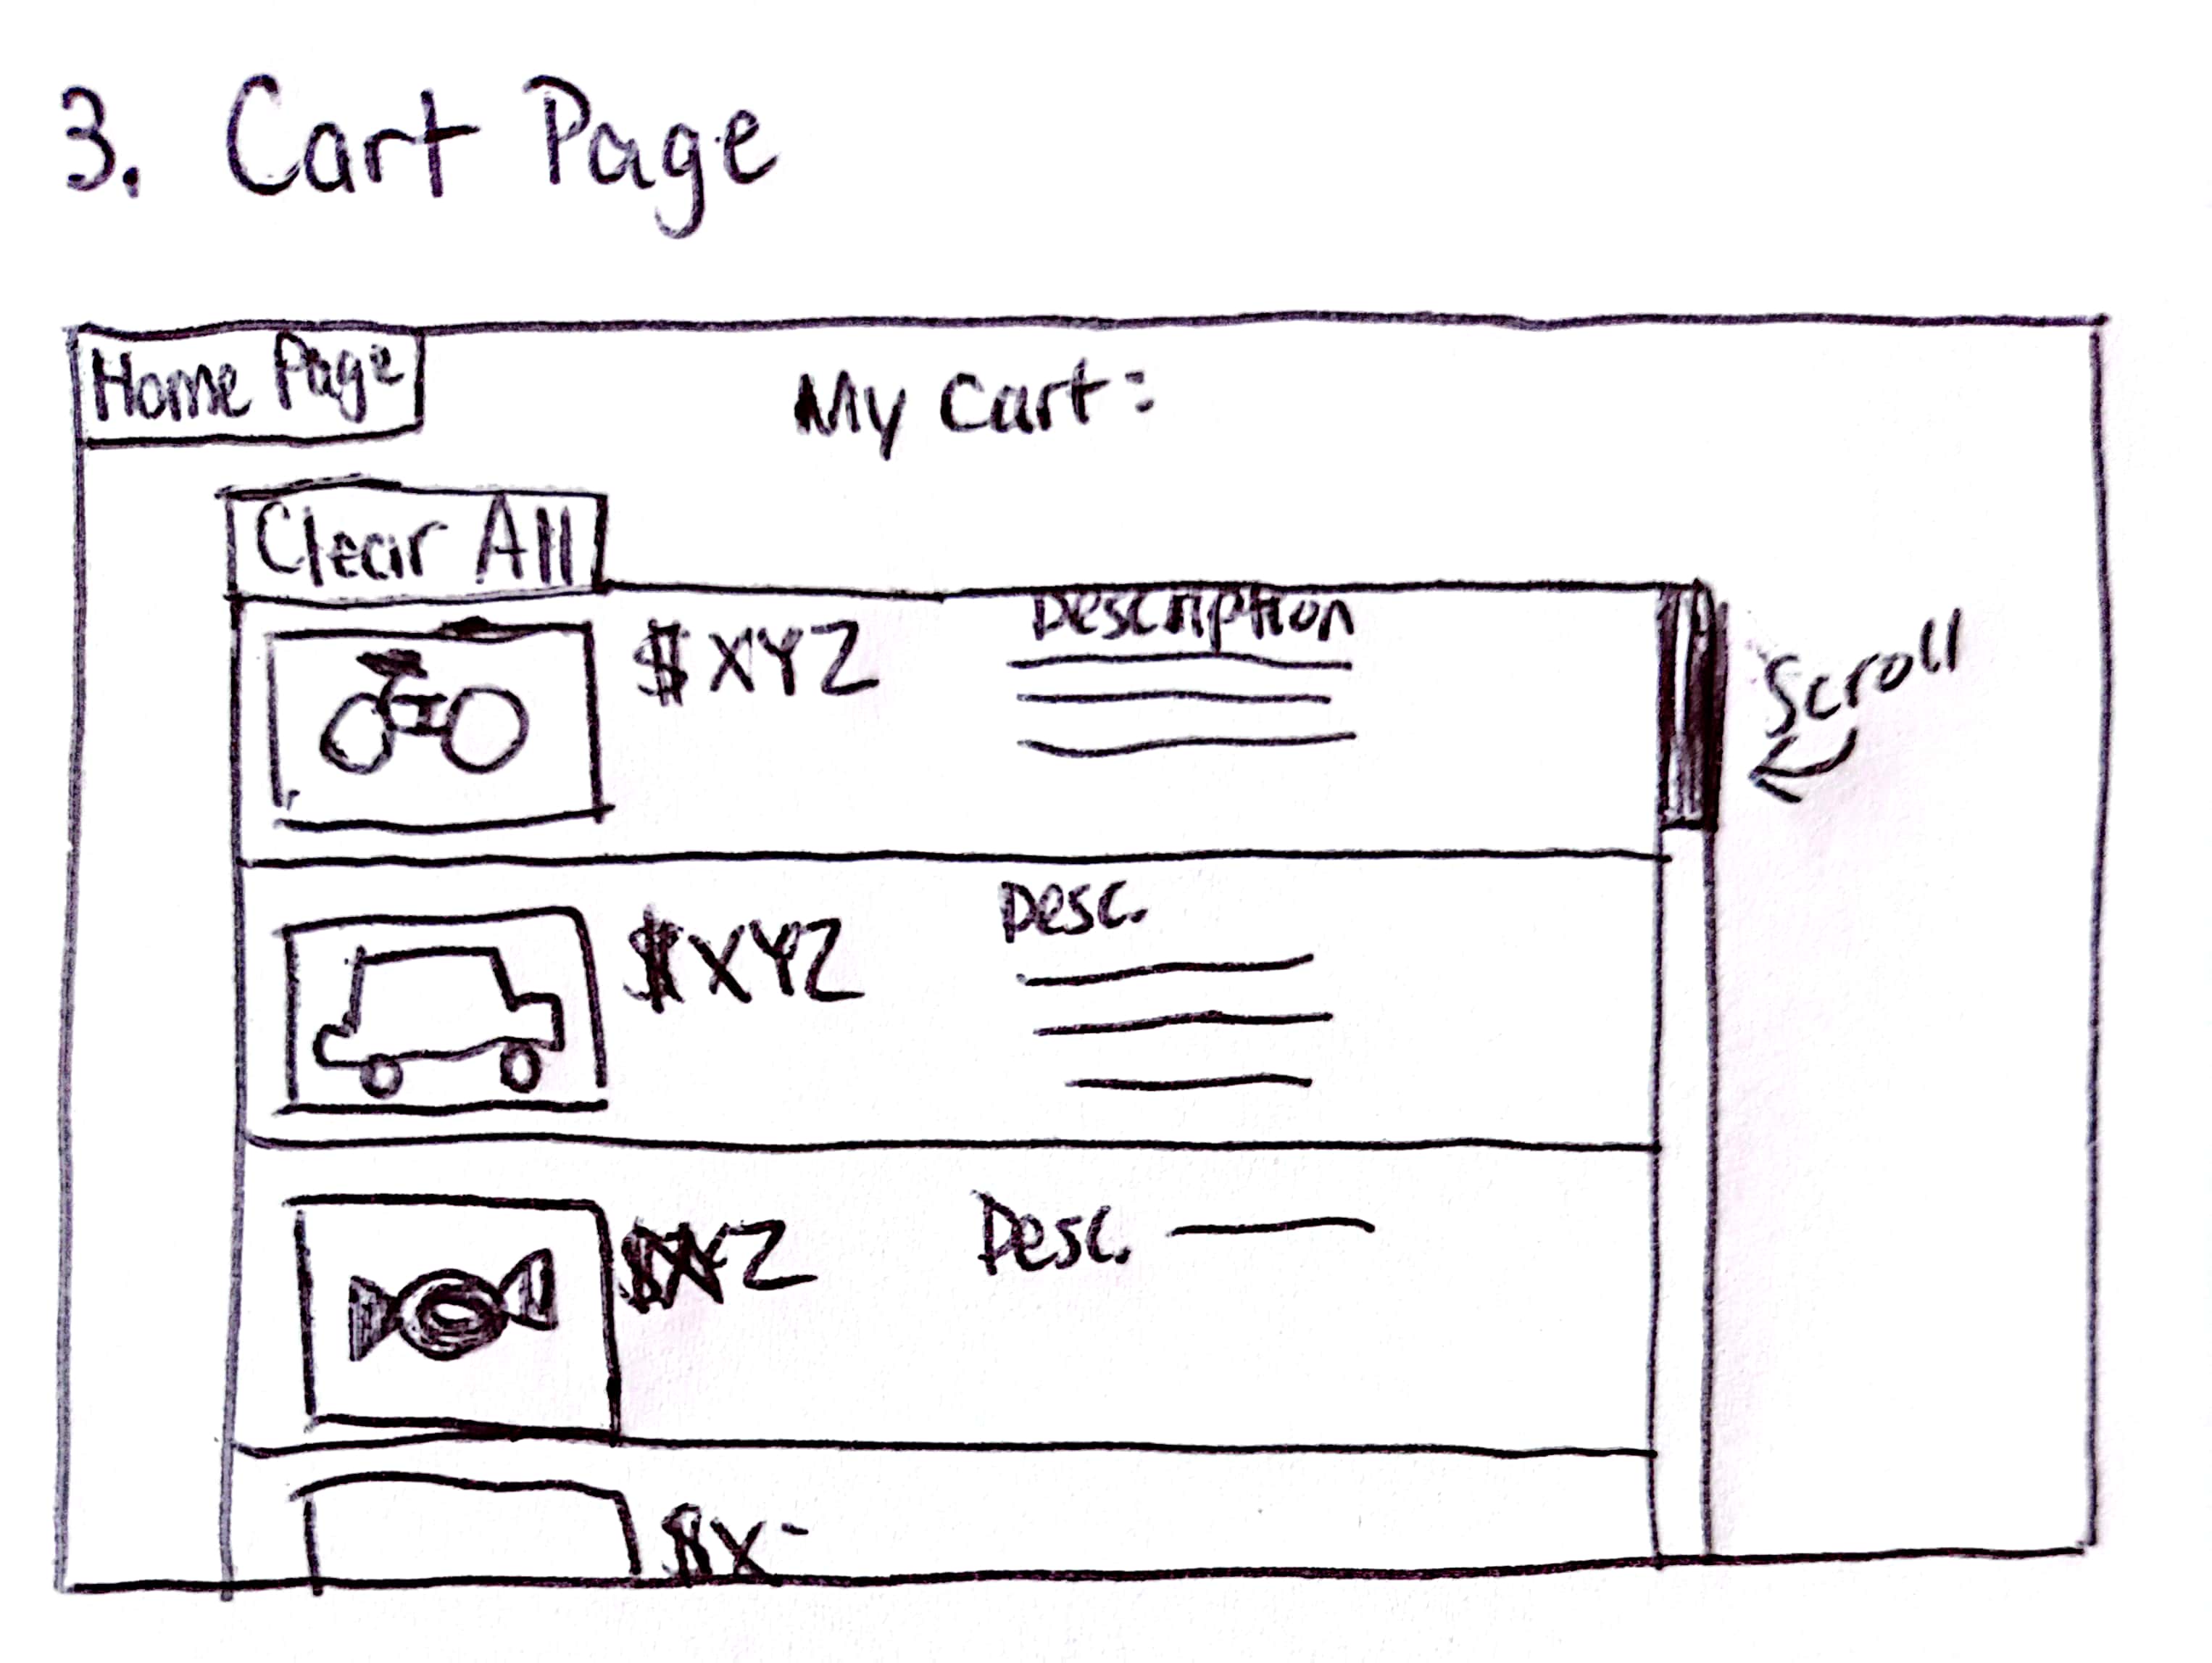 3. Cart Page
Home Page
My Cart:
Clear All
$XYZ
Description
Scroll
$XYZ
Desc.
$XYZ
Desc.
$X